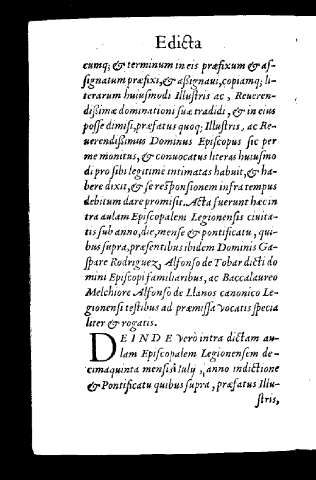 Edicta
eumq; & terminum in eis præfixum & as-
signatum præfixi, & assignaui, copiamq; li-
terarum huiusmodi Illustris ac, Reueren-
dissimæ dominationi suæ tradidi, & in eius
posse dimisi, præfatus quoq; Illustris, ac Re-
uerendissimus Dominus Episcopus sic per
me monitus, & conuocatus literas huiusmo
di pro sibi legitime intimatas habuit, & ha-
bere dixit, & se responsionem infra tempus
debitum dare promisit. Acta fuerunt hæc in
tra aulam Episcopalem Legionensis ciuita-
tis sub anno, die, mense & pontificatu, qui-
bus supra, præsentibus ibidem Dominis Ga-
spare Rodriguez, Alfonso de Tobar dicti do
mini Episcopi familiaribus, ac Baccalaureo
Melchiore Alfonso de Llanos canonico Le-
gionensi testibus ad præmissa vocatis specia
liter & rogatis.
DEINDE vero intra dictam au-
lam Episcopalem Legionensem de-
cimaquinta mensis Iuly, anno indictione
& Pontificatu quibus supra, præfatus Illu-
stris,